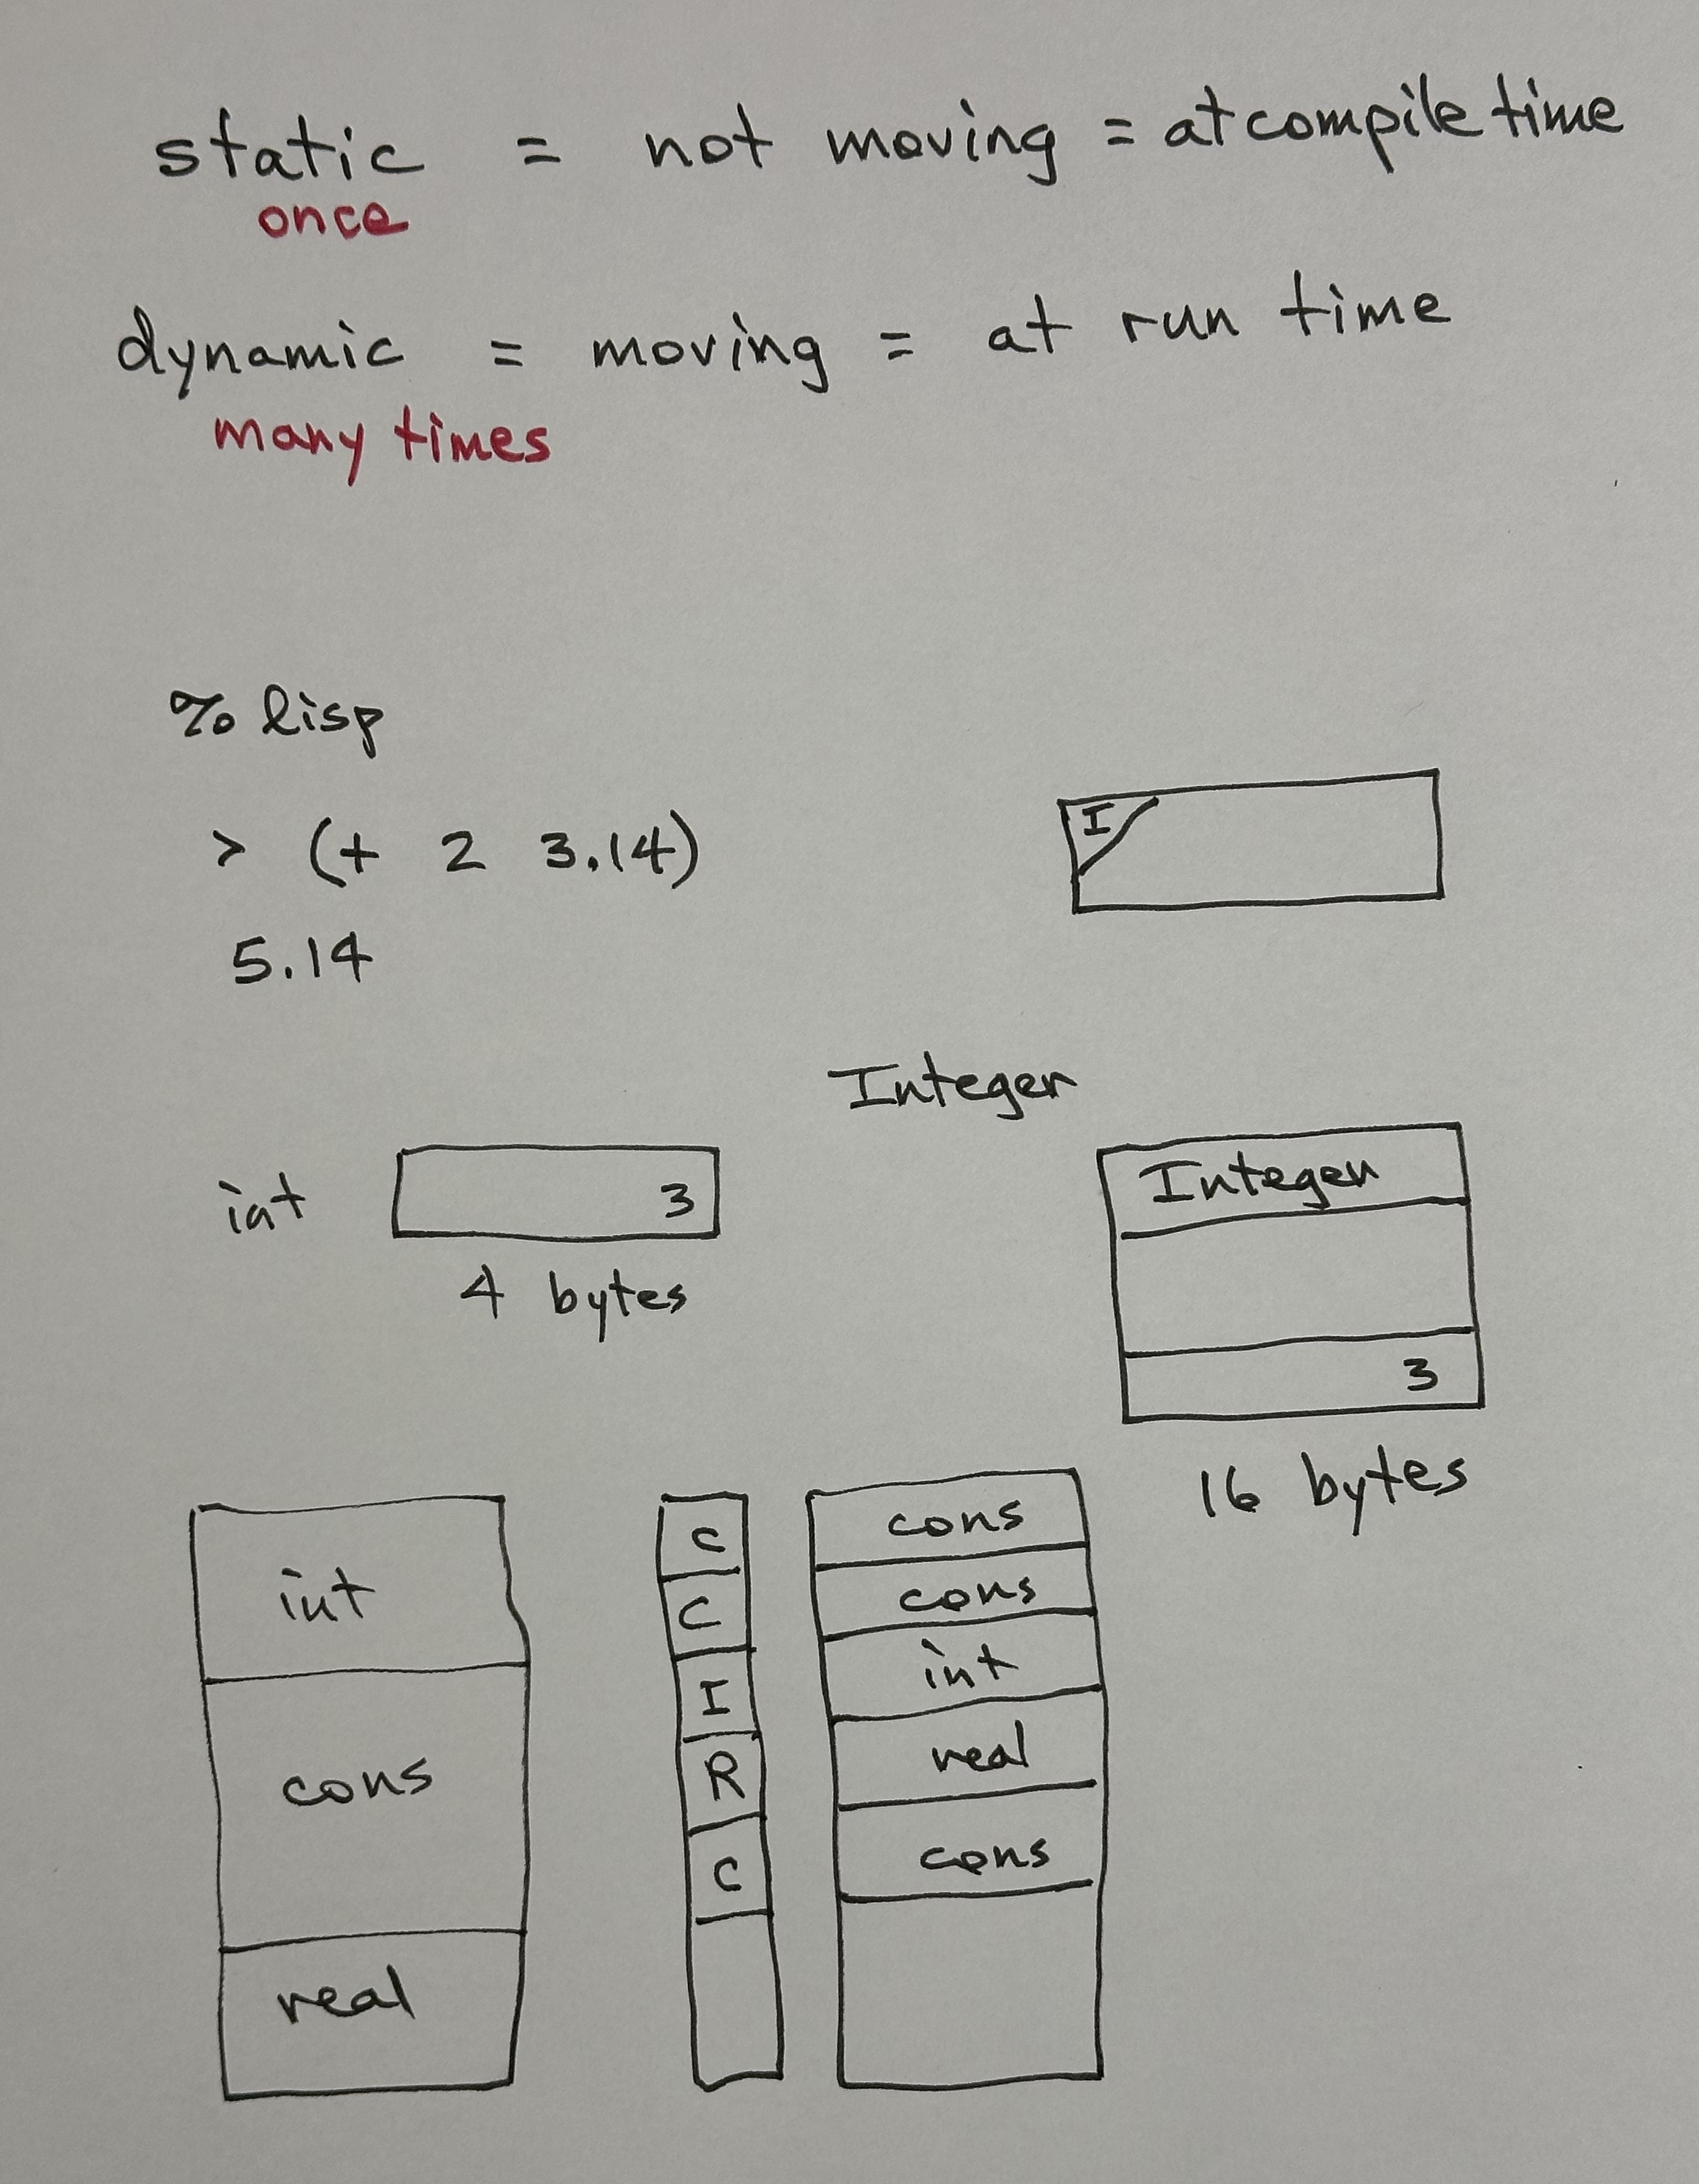 static = not moving = at compile time
once
dynamic = moving = at run time
many times
% lisp
> (+ 2 3.14)
5.14
I
Integer
int 3
4 bytes
Integer
3
16 bytes
int
cons
real
C
C
I
R
C
cons
cons
int
real
cons